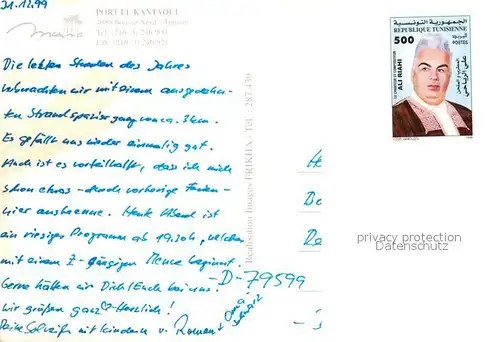 31.12.99
PORT EL KANTAOUI
Die letzten Stunden des Jahres
verbrachten wir mit einem ausgedehn-
ten Strandspaziergang von ca. 3 km.
Es gefällt uns wieder einmalig gut.
Auch ist es vorteilhaft, dass ich mich
schon etwas - durch vorherige Ferien -
hier auskenne. Heute Abend ist
ein riesiges Programm ab 19.30 h, welches
mit einem 7-gängigen Menue beginnt.
Gerne hätten wir Dich/Euch bei uns.
Wir grüßen ganz Herzlich!
Deine mit Kindern u. Roman
Oma
Réalisation Images FRIKHA - Tél. : 287.439
D-79599
الجمهورية التونسية
REPUBLIQUE TUNISIENNE
500
POSTES
البريد
علي الرياحي
ALI RIAHI
LE CHANTEUR ET COMPOSITEUR
privacy protection
Datenschutz